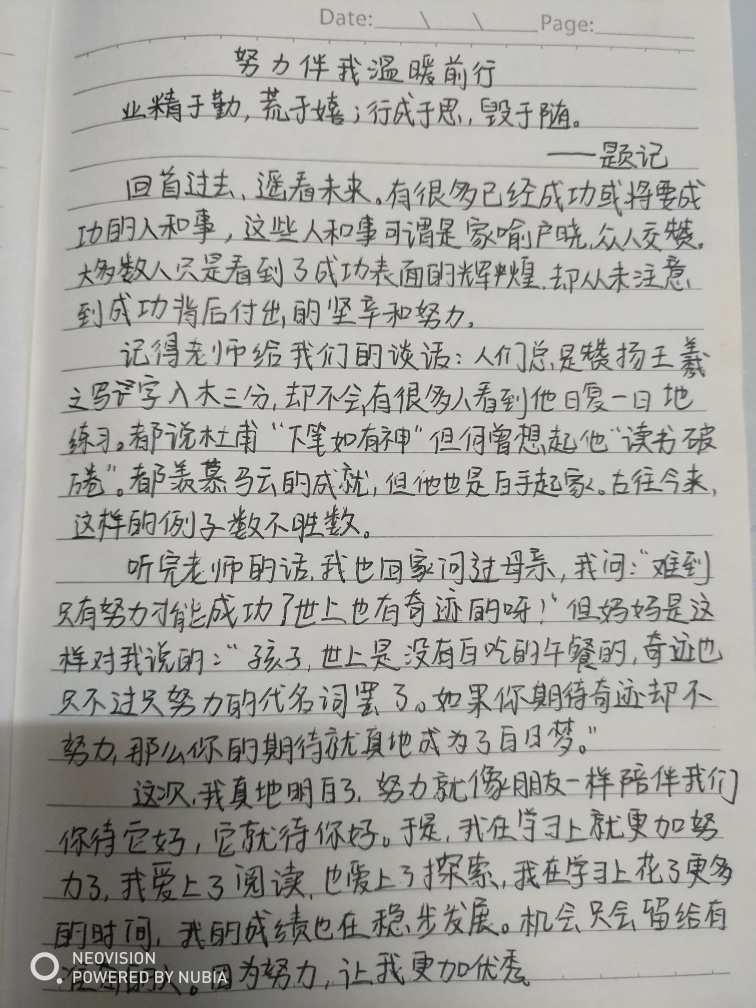 Date: \ \ Page:
努力伴我温暖前行
业精于勤，荒于嬉；行成于思，毁于随。
——题记
回首过去、遥看未来。有很多已经成功或将要成
功的人和事，这些人和事可谓是家喻户晓，众人交赞。
大多数人只是看到了成功表面的辉煌，却从未注意
到成功背后付出的坚辛和努力。
记得老师给我们的谈话：人们总是赞扬王羲
之写字入木三分，却不会有很多人看到他日复一日地
练习。都说杜甫“下笔如有神”但何曾想起他“读书破
万卷”。都羡慕马云的成就，但他也是白手起家。古往今来，
这样的例子数不胜数。
听完老师的话，我也回家问过母亲，我问：“难到
只有努力才能成功了世上也有奇迹的呀！”但妈妈是这
样对我说的：“孩子，世上是没有白吃的午餐的，奇迹也
只不过只努力的代名词罢了。如果你期待奇迹却不
努力，那么你的期待就真地成为了白日梦。”
这次，我真地明白了，努力就像朋友一样陪伴我们
你待它好，它就待你好。于是，我在学习上就更加努
力了，我爱上了阅读，也爱上了探索，我在学习上花了更多
的时间，我的成绩也在稳步发展。机会只会留给有
准备的人。因为努力，让我更加优秀。
NEOVISION
POWERED BY NUBIA